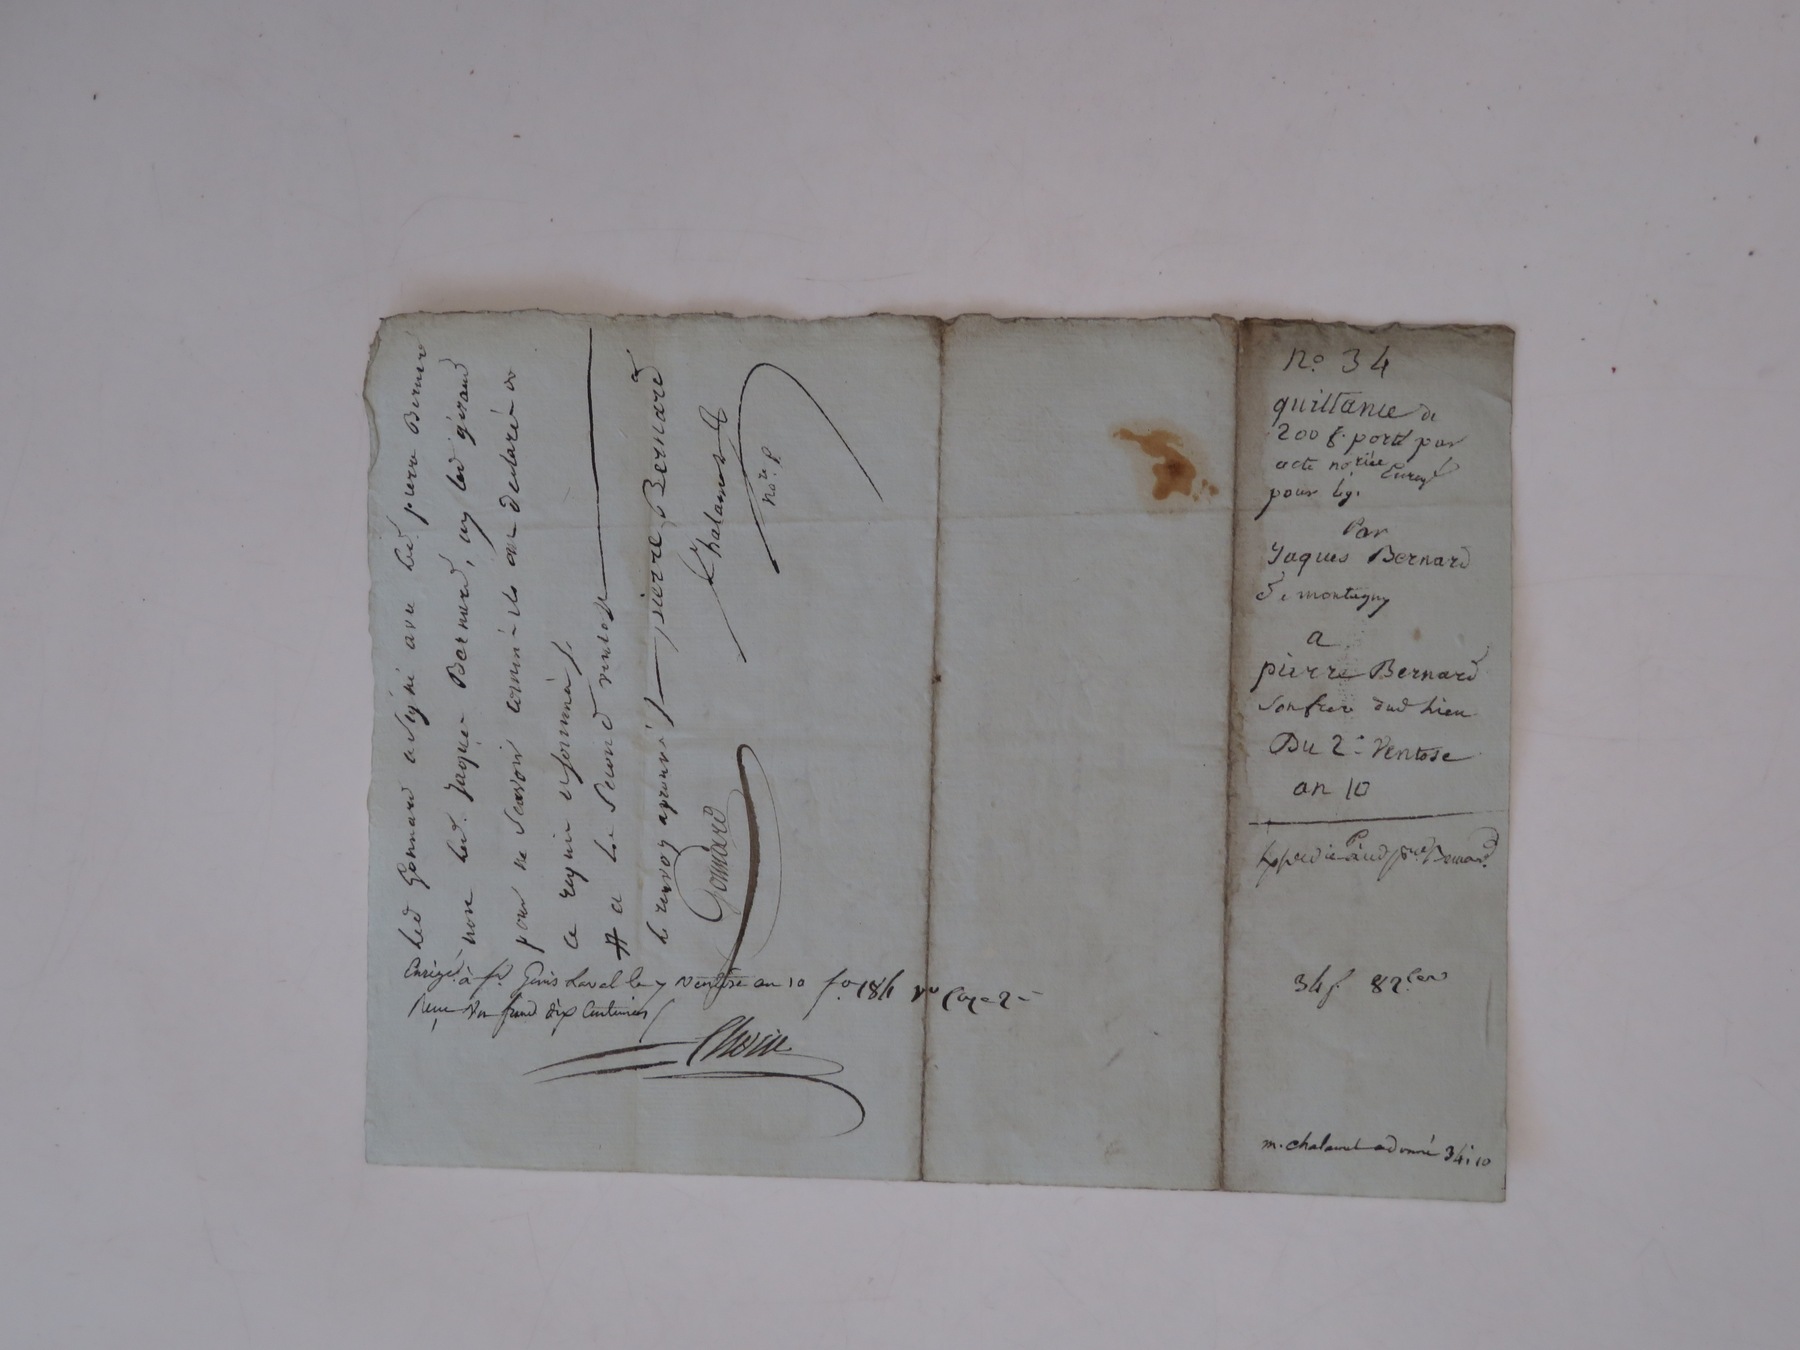 led gonnard a signé avec led. pierre Bernard
non led. Jaques Bernard, ny led gérard
pour ne scavoir comme ils ont declaré de
ce requis et sommés
# a le second ventose
le renvoy approuvé pierre Bernard
Gonnard
Chalamel
no.re p.
Enregé. à St. Genis Laval le 7 ventose an 10 fo. 184 vo Case 2
Reçu un franc dix centimes
no. 34
quittance de
200 f. porté par
acte no.riée Enreg.
pour lyi
Par
Jaques Bernard
De montagny
a
pierre Bernard
son frere dud lieu
Du 2e Ventose
an 10
Expedié aud pre Bernard
34 f. 82 cen
m. chalamel a donné 34 i 10